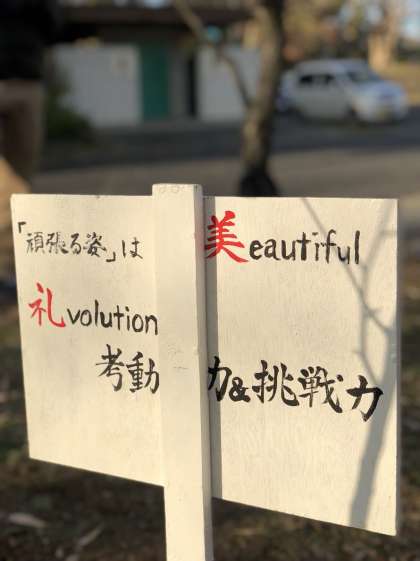 「頑張る姿」は 美eautiful
礼volution
考動力&挑戦力